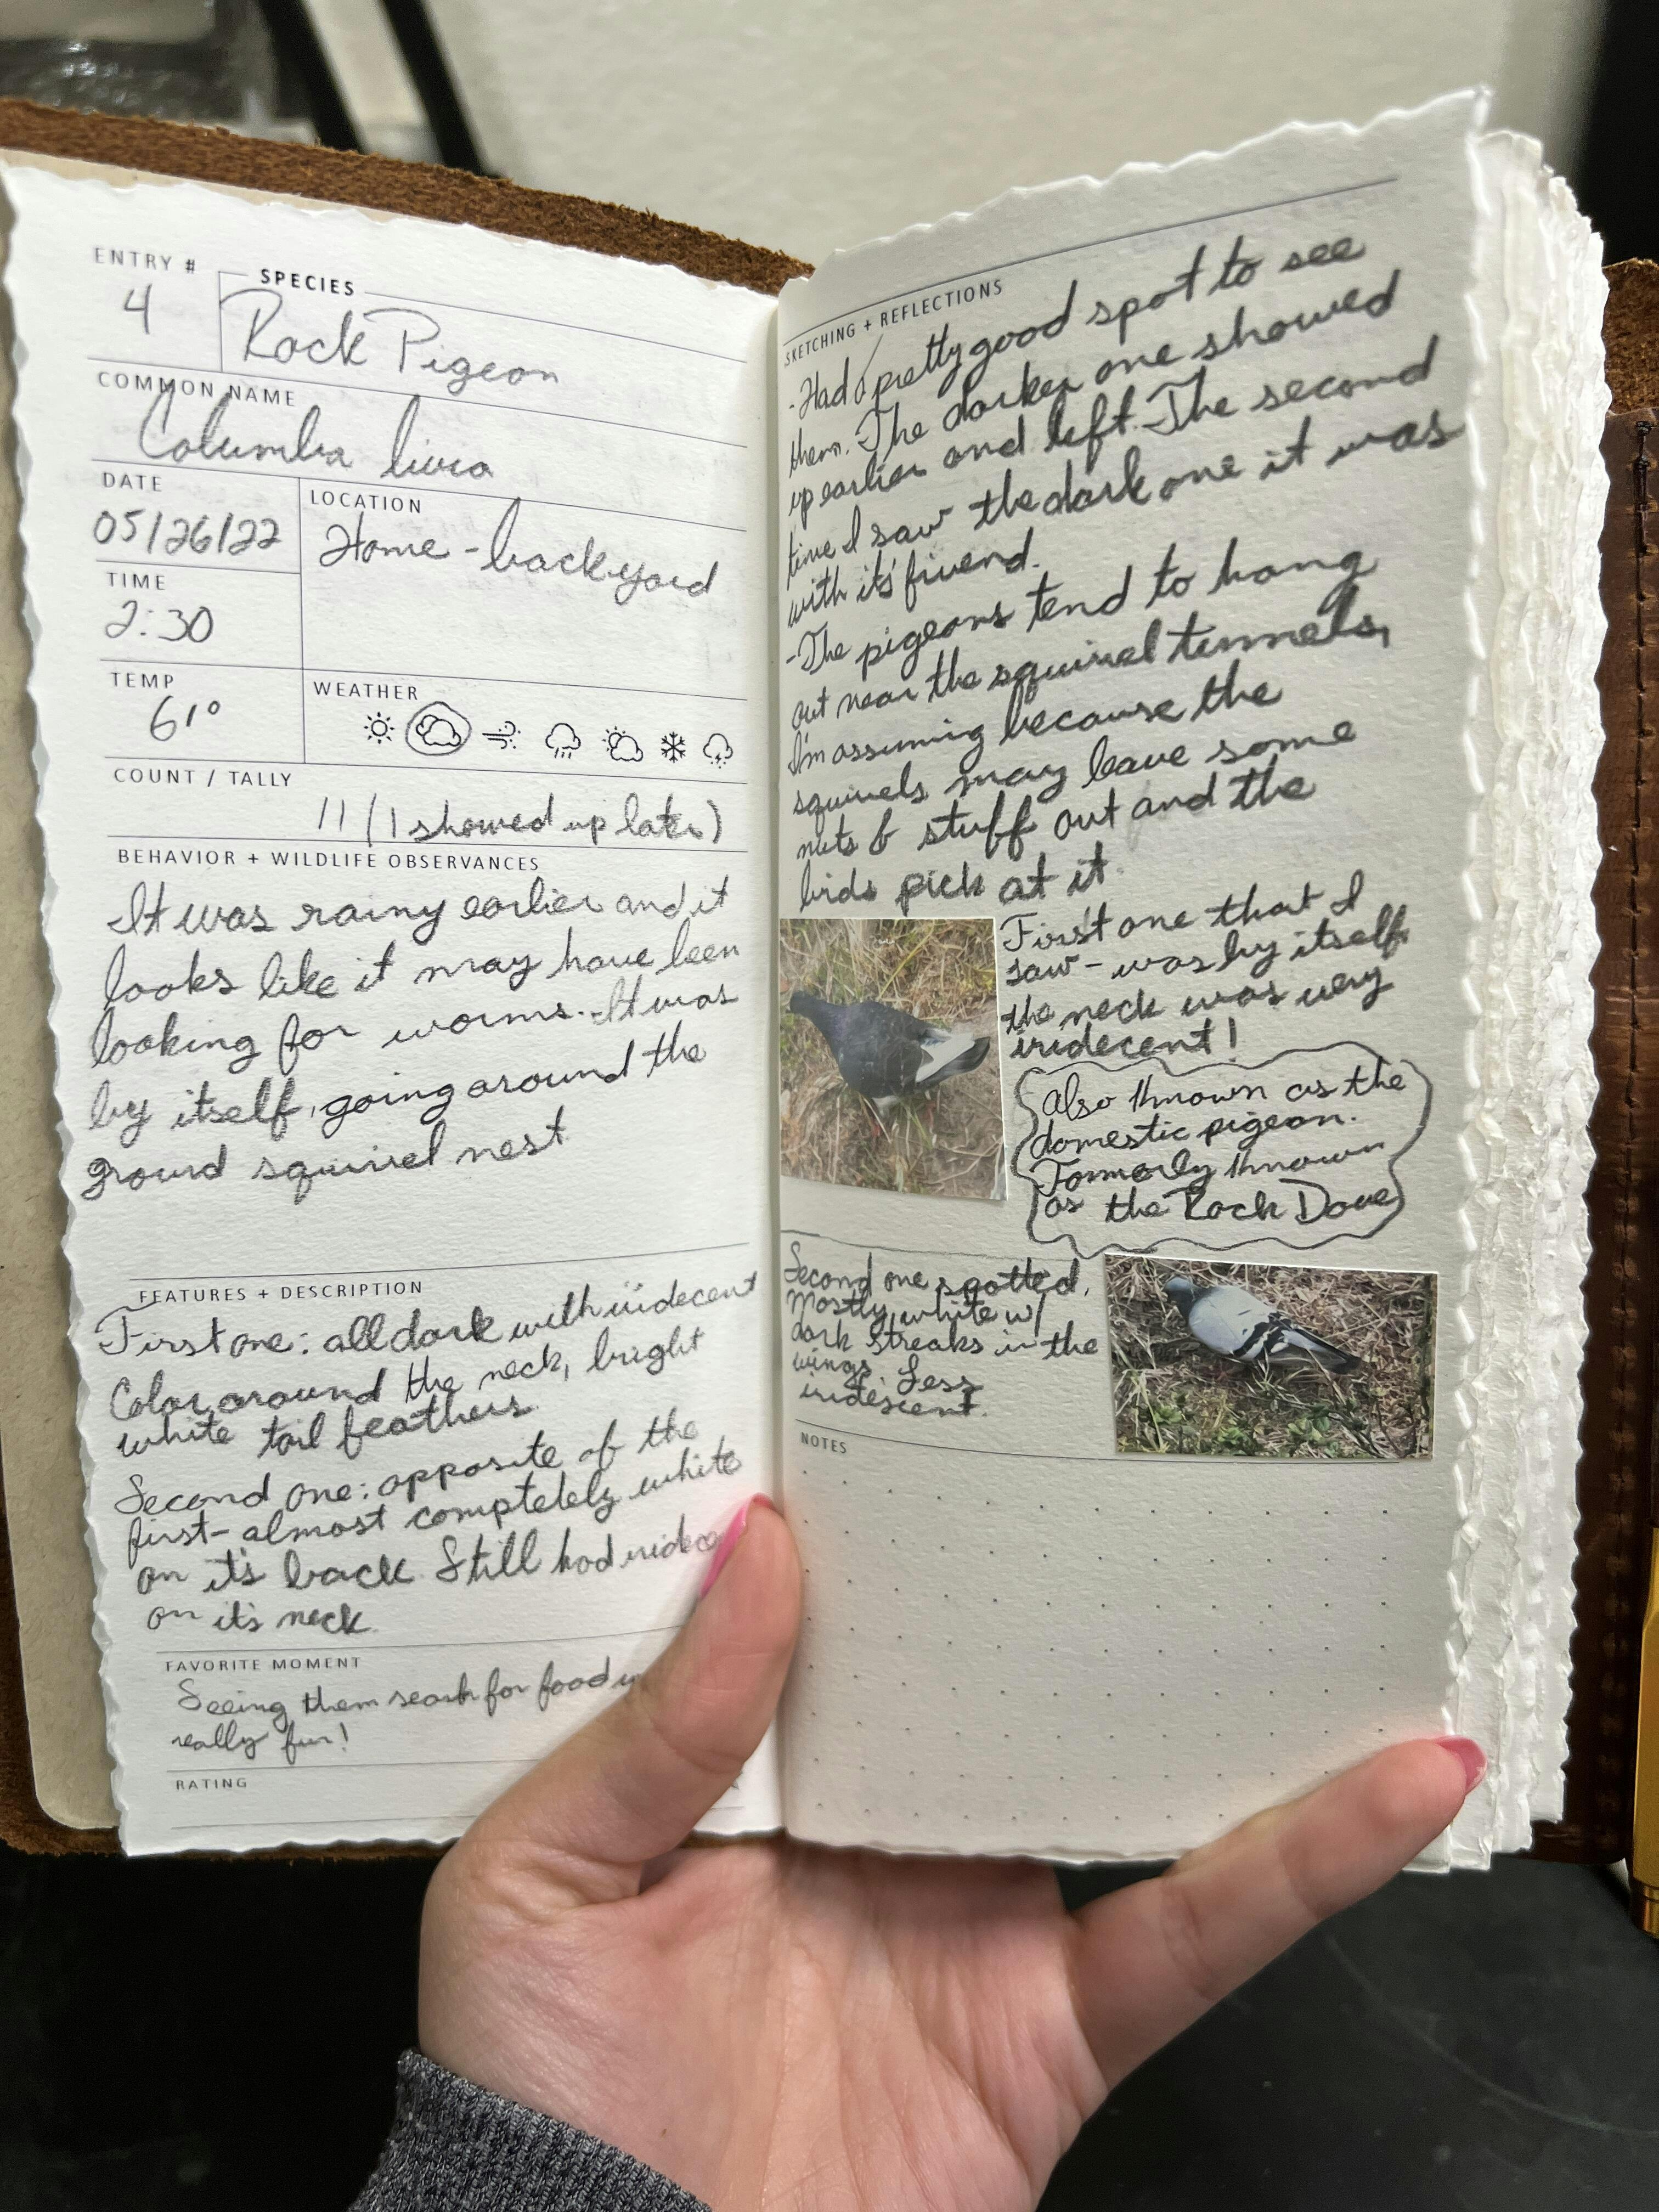 ENTRY #
4
SPECIES
Rock Pigeon
COMMON NAME
Columba livia
DATE
05/26/22
LOCATION
Home - backyard
TIME
2:30
TEMP
61°
WEATHER
COUNT / TALLY
11 (1 showed up later)
BEHAVIOR + WILDLIFE OBSERVANCES
It was rainy earlier and it
looks like it may have been
looking for worms. It was
by itself, going around the
ground squirrel nest
FEATURES + DESCRIPTION
First one: all dark with iridecent
Color around the neck, bright
white tail feathers.
Second one: opposite of the
first- almost completely white
on it's back. Still had
on it's neck
FAVORITE MOMENT
Seeing them search for food
really fun!
RATING
SKETCHING + REFLECTIONS
- Had a pretty good spot to see
them. The darker one showed
up earlier and left. The second
time I saw the dark one it was
with its' friend.
- The pigeons tend to hang
out near the squirrel tunnels,
I'm assuming because the
squirrels may leave some
nuts & stuff out and the
birds pick at it.
First one that I
saw - was by itself
the neck was very
iridecent!
Also known as the
domestic pigeon.
Formerly known
as the Rock Dove
Second one spotted.
Mostly white w/
dark streaks in the
wings. Less
iridescent.
NOTES